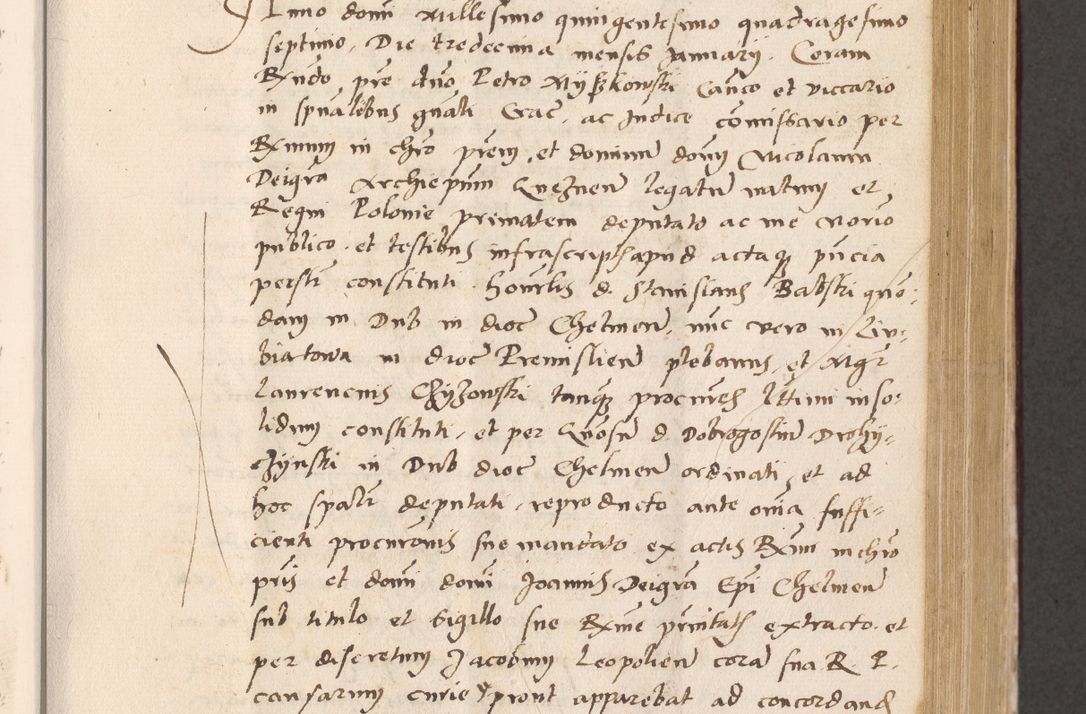 Anno domi Millesimo quingentesimo quadragesimo
septimo, Die tredecima mensis Januarij. Coram
Rndo pre dno Petro Myszkowski Canco et viccario
in spualibus gnali Crac. ac Judice comissario per
Rxmum in chro prem, et dominum domi Nicolaum
Dei gra Archiepum Gneznen legatum natum et
Regni Polonie primatem deputato ac me Norio
publico et testibus infrascriptis apud actaqz pncia
personlr constituti Honorlis d. Stanislaus Babski quon-
dam in Dub in dioc Chelmen, nunc vero in Lip-
biatowa in dioc Premislien plebanus, et Mgr
Laurencius Chyzowski tanqz procures lttimi inso-
lidum constituti, et per Gnosum d. Dobrogostium Drohy-
czynski in Dub dioc Chelmen ordinati, et ad
hoc spalr deputati, reproducto ante omia suffi-
cienti procuronis sue mandato ex actis Rxmi in chro
pris et domi domi Joannis Dei gra Epi Chelmen
sub titulo et Sigillo sue Rxme prnitatis extracto et
per discretum Jacobum Leopolien cora sua R. P.
causarum curie prout apparebat ad concordand